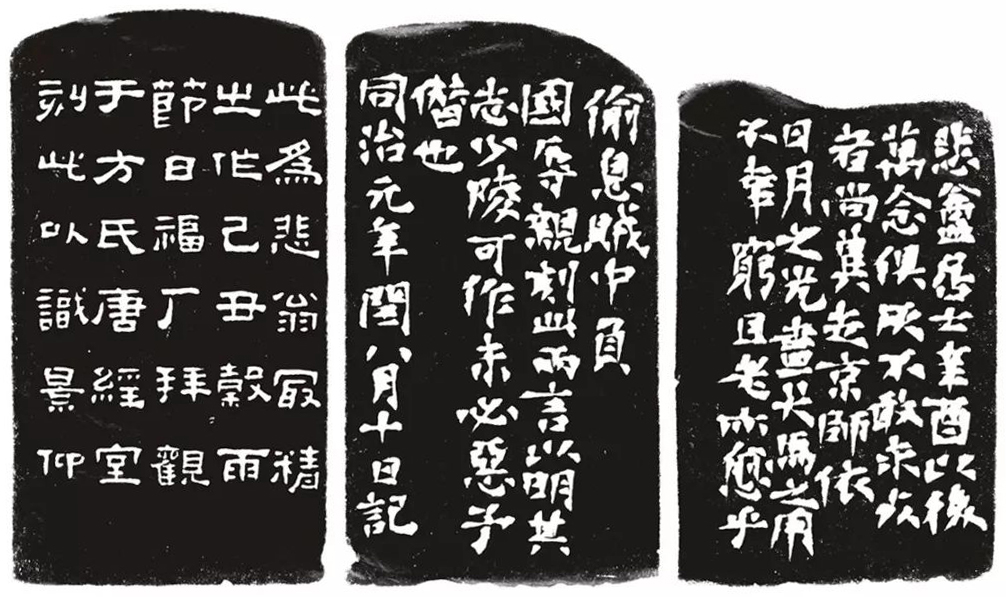 悲盦居士辛酉以後
萬念俱灰不敢求死
者尚冀走京師依
日月之光盡犬馬之用
不幸窮且老亦愈乎
偷息賊中負
國辱親刻此兩言以明其
志少陵可作未必惡予
僭也
同治元年閏八月十日記
此爲悲翁冣精
之作己丑穀雨
節日福厂拜觀
于方氏唐經室
刻此以識景仰